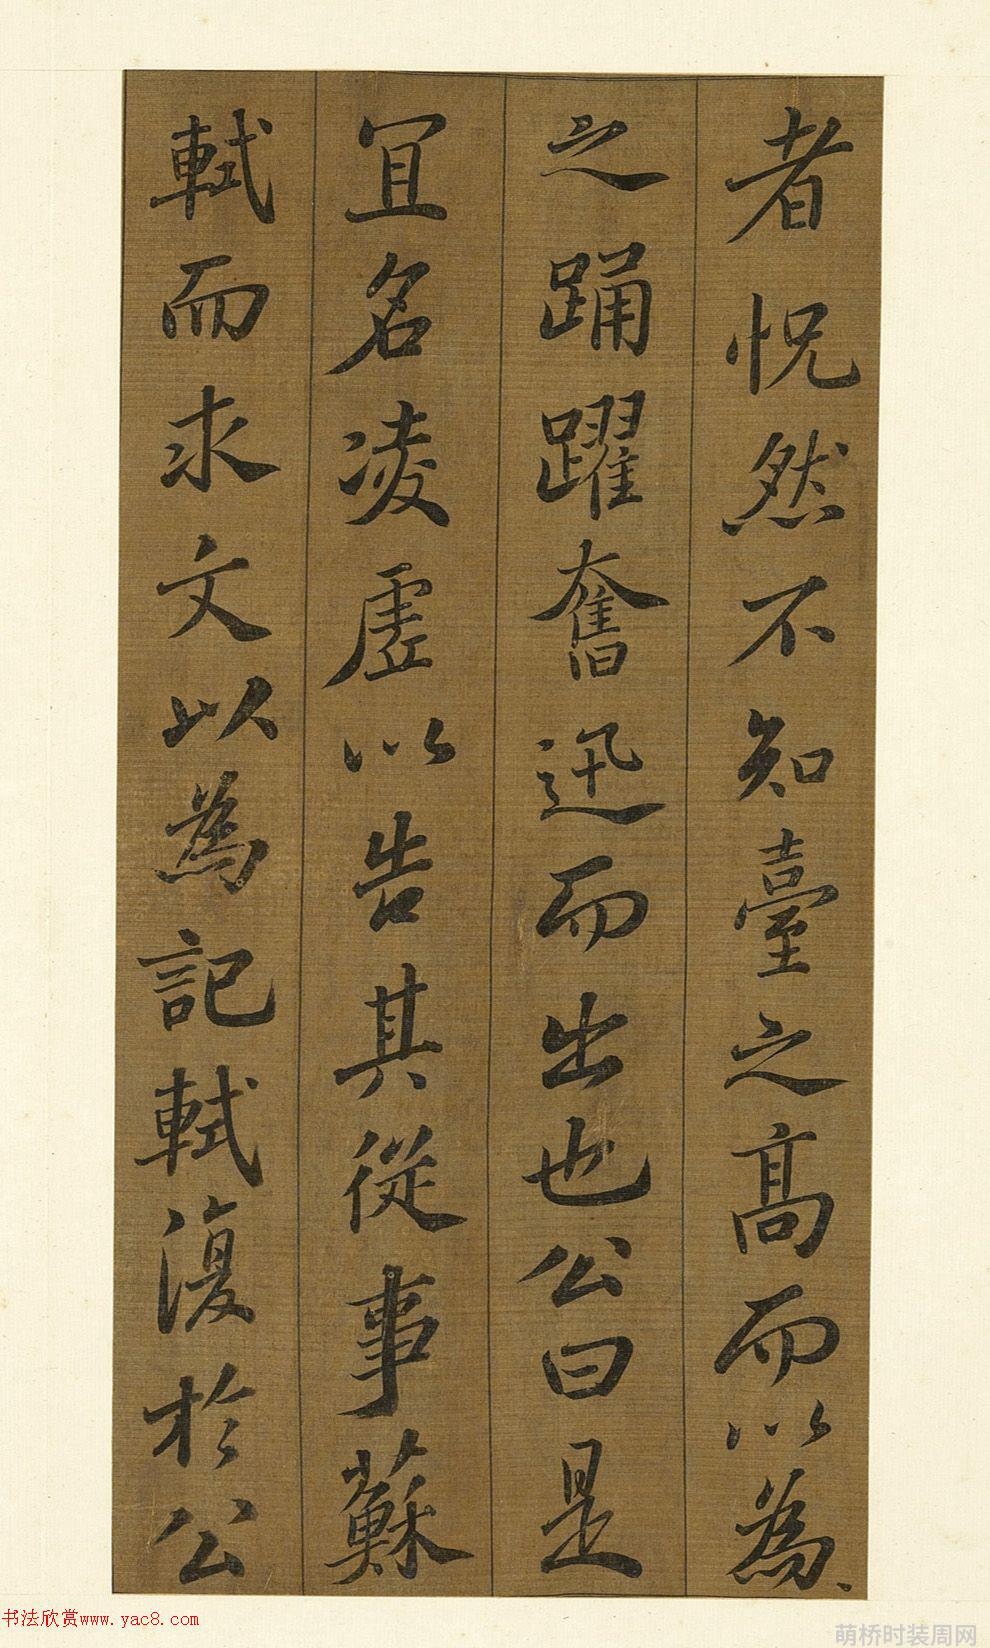 者怳然不知臺之高而以為
之踊躍奮迅而出也公曰是
宜名凌虛以告其從事蘇
軾而求文以為記軾復於公
书法欣赏www.yac8.com
萌桥时装周网